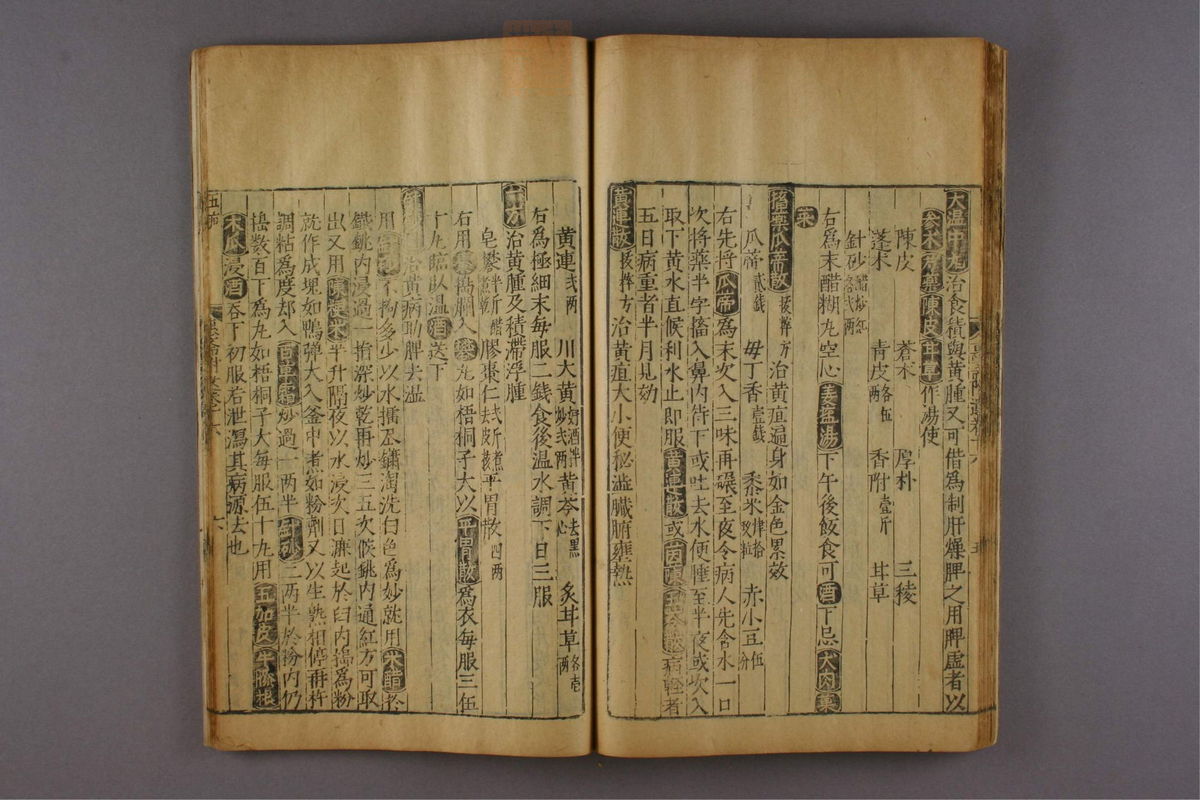 大温中丸治食積與黄腫又可借爲制肝燥脾之用脾虛者以
参术陳皮甘草作湯使
陳皮 蒼术 厚朴 三稜
蓬术 青皮各伍兩 香附壹斤 甘草
針砂醋炒紅
右爲末醋糊丸空心姜塩湯下午後飯食可酒下忌犬肉菓
菜
瓜帝散拔萃方治黄疸遍身如金色累效
瓜帝貳錢 母丁香壹錢 黍米 赤小豆伍分
右先将瓜帝爲末次入三味再碾至夜令病人先含水一口
次将藥半字搐入鼻内待下或吐去水便睡至半夜或次入
取下黄水直候利水止即服黄連散或茵陳五苓散病輕者
五日病重者半月見効
黄連散拔萃方治黄疸大小便秘澁臟腑壅熱
黄連貳兩 川大黄好酒拌炒貳兩 黄芩去黑心 炙甘草各壹兩
右爲極細末每服二錢食後温水調下日三服
一方治黄腫及積滯浮腫
皂礬半斤醋 膠棗仁貳斤煮去皮核 平胃散四兩
右用棗搗爛入礬丸如梧桐子大以平胃散爲衣每服三伍
十丸臨臥温酒送下
治黄病助脾去濕
用不拘多少以水擂去鏽淘洗白色爲妙就用米醋於
鐵銚内浸過一指深炒乾再炒三五次候銚内通紅方可取
出又用陳粳米半升隔夜以水浸次日漉起於臼内搗爲粉
就作成塊如鴨彈大入釜中煮如粉劑又以生熟相停
調粘爲度却入炒過一兩半針砂二兩半於粉内仍
搗数百下爲丸如梧桐子大每服伍十丸用五加皮牛膝根
木瓜浸酒吞下初服若泄瀉其病源去也